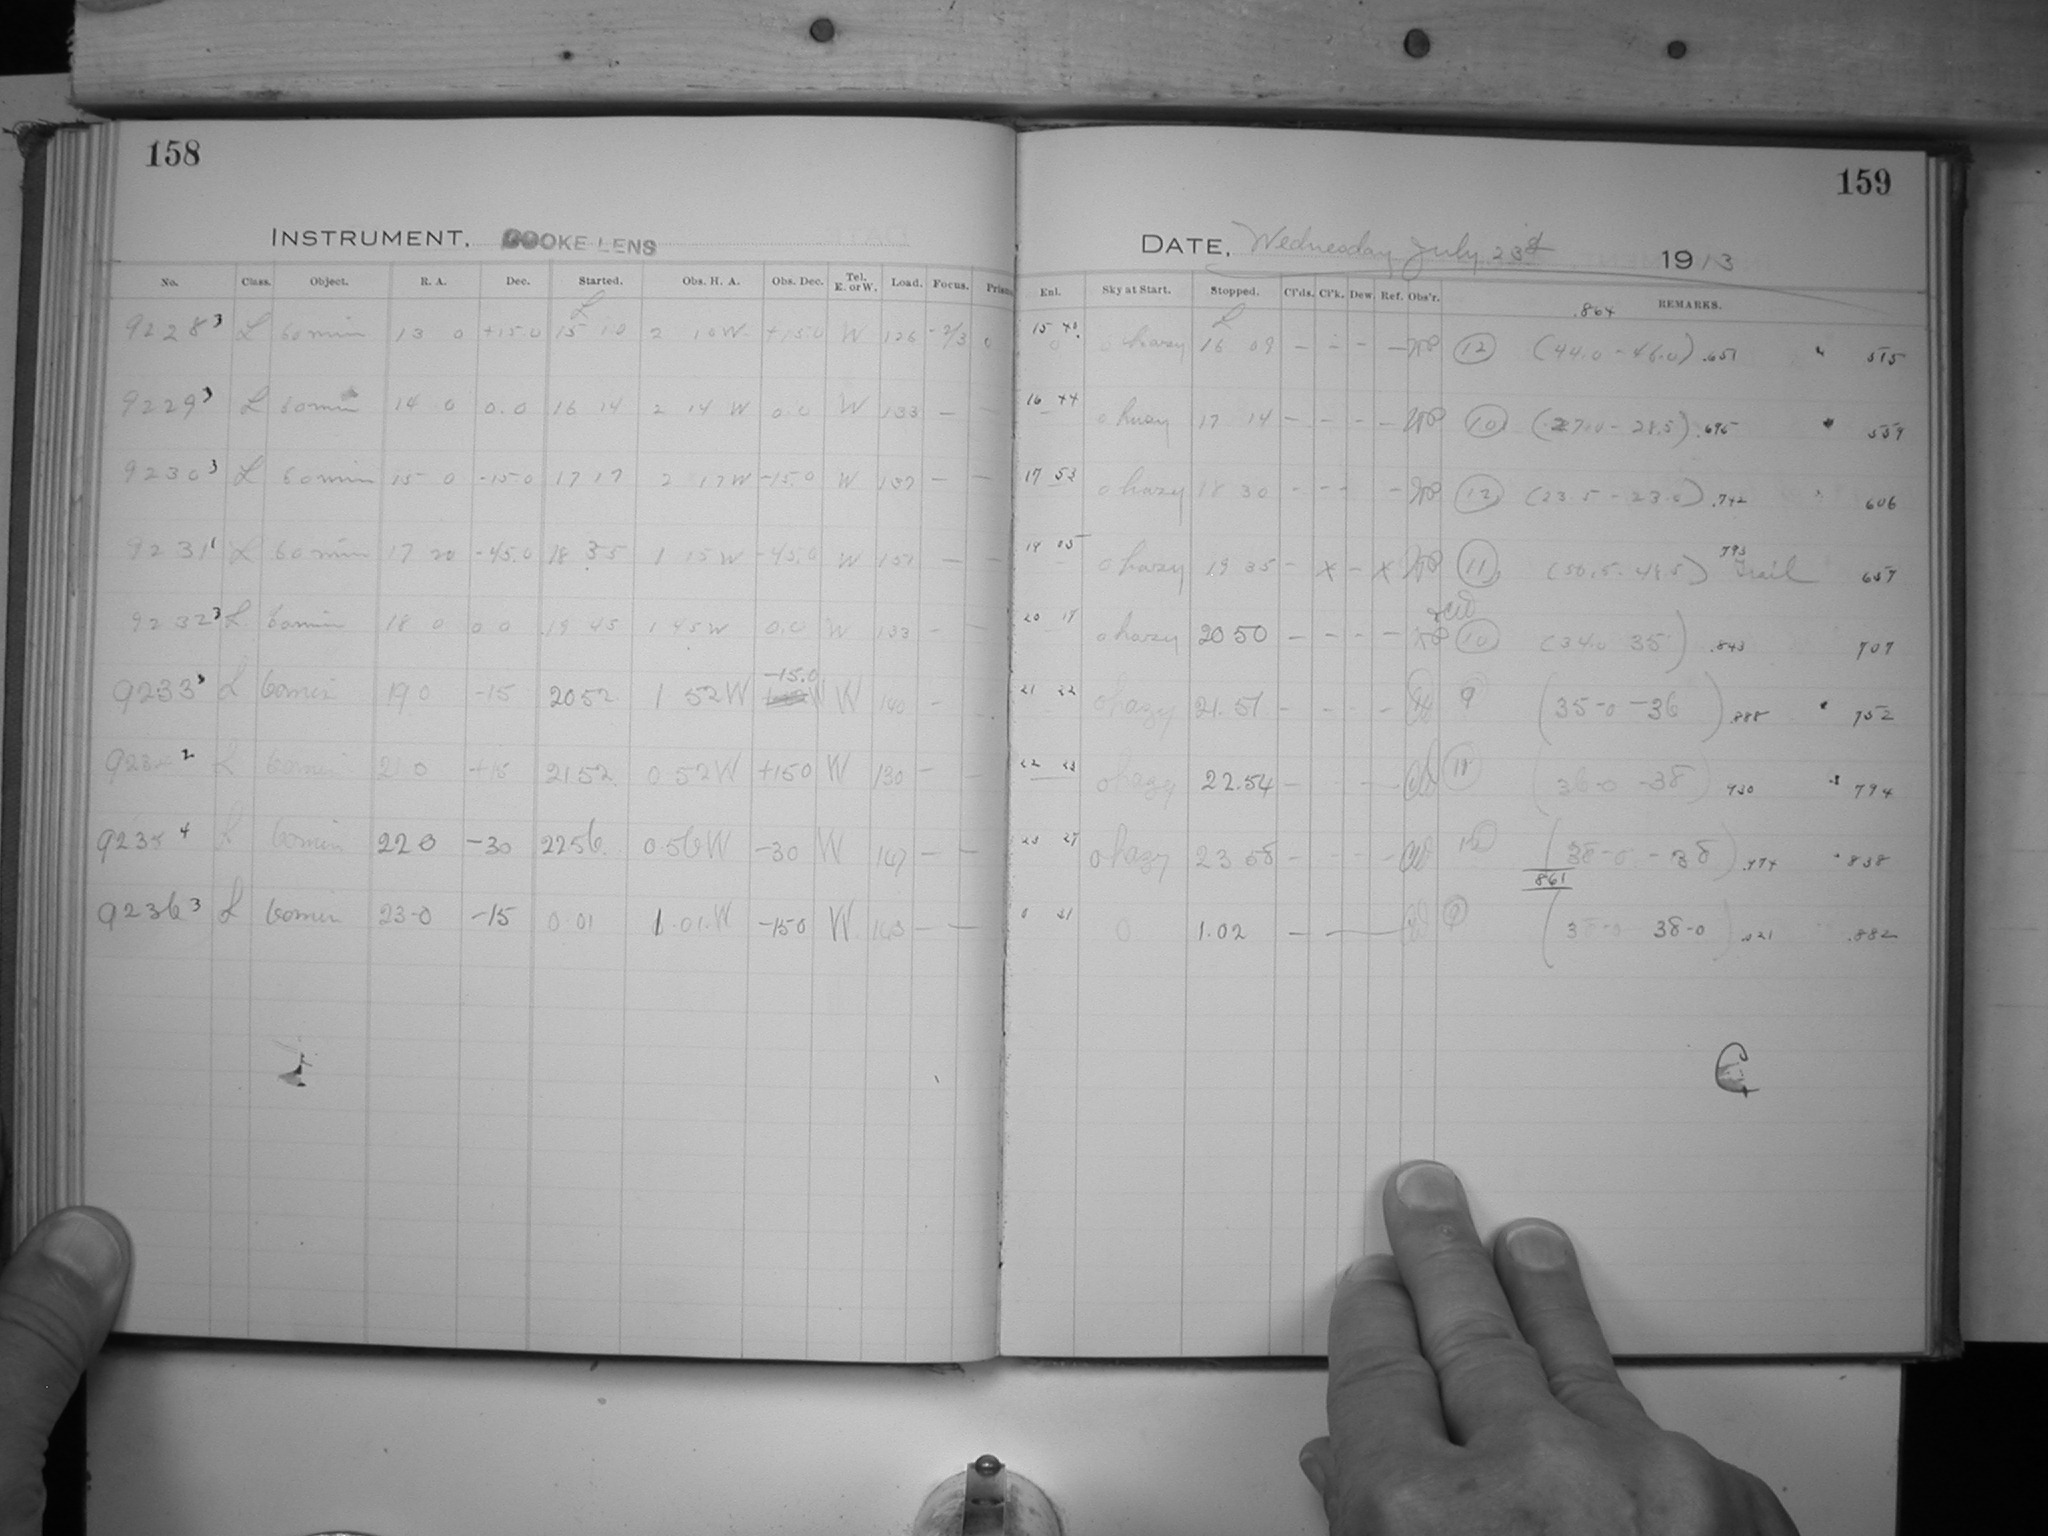 158
159
INSTRUMENT. COOKE LENS
DATE. Wednesday July 23d 1913
No. Class. Object. R. A. Dec. Started. Obs. H. A. Obs. Dec. Tel. E. or W. Load. Focus. Prism
Enl. Sky at Start. Stopped. Cl'ds. Cl'k. Dew. Ref. Obs'r. REMARKS.
.864
9228 3 L 60 min 13 0 +15.0 15 10 2 10 W +15.0 W 126 -2/3 0
15 40 0 hazy 16 09 - - - - 12 (44.0 - 46.0) .651 515
9229 3 L 60 min 14 0 0.0 16 14 2 14 W 0.0 W 133 - -
16 44 0 hazy 17 14 - - - - 10 (27.0 - 28.5) .695 559
9230 3 L 60 min 15 0 -15.0 17 17 2 17 W -15.0 W 137 - -
17 53 0 hazy 18 30 - - - - 12 (23.5 - 23.0) .742 606
9231 1 L 60 min 17 20 -45.0 18 35 1 15 W -45.0 W 151 - -
19 05 0 hazy 19 35 - x - x 11 (50.5 - 48.5) 793 Trail 657
9232 3 L 60 min 18 0 0 0 19 45 1 45 W 0.0 W 133 - -
20 17 0 hazy 20 50 - - - - 10 (34.0 35) .843 707
9233 3 L 60 min 19 0 -15 20 52 1 52 W -15.0 W 140 -
21 22 0 hazy 21.51 - - - - 9 (35-0 - 36) .888 752
2 L 60 min 21 0 +15 21 52 0 52 W +15 0 W 130 - -
22 23 0 hazy 22.54 - - - - (36-0 - 38) 930 794
9235 4 L 60 min 22 0 -30 22 56 0 56 W -30 W 147 - -
23 27 0 hazy 23 58 - - - - (38-0 - 38) .974 838
861
9236 3 L 60 min 23-0 -15 0 01 1.01 W -15 0 W 143 - -
0 31 0 1.02 - 9 (38-0 38-0) .021 .882